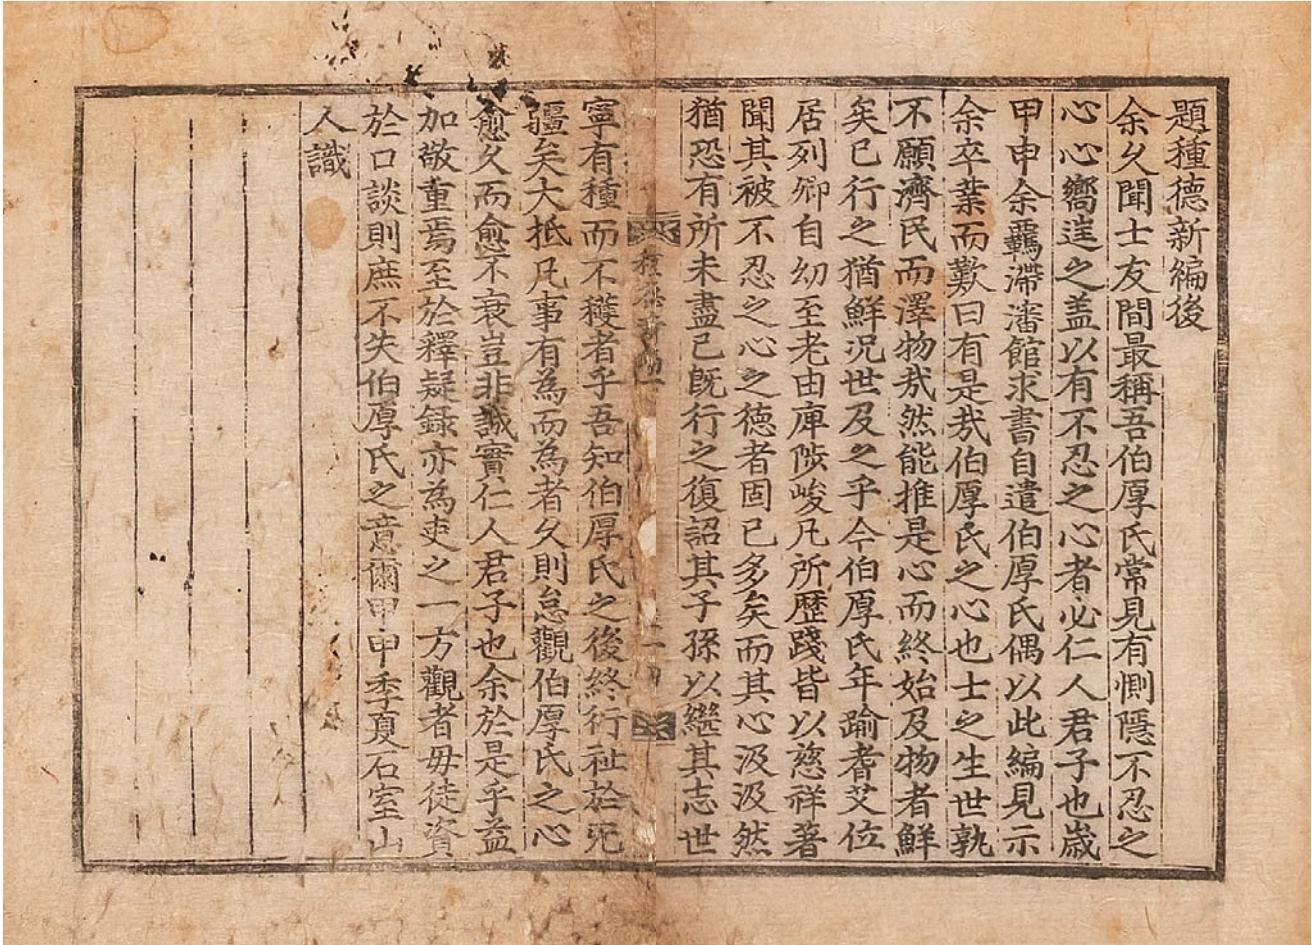 題種德新編後
余久聞士友間最稱吾伯厚氏常見有惻隱不忍之
心心嚮𨓏之盖以有不忍之心者必仁人君子也歲
甲申余羈滯瀋館求書自遣伯厚氏偶以此編見示
余卒業而歎曰有是㢤伯厚氏之心也士之生世孰
不願濟民而澤物㢤然能推是心而終始及物者鮮
矣已行之猶鮮况世及之乎今伯厚氏年踰耆艾位
居列卿自幼至老由庳陟峻凡所歷踐皆以慈祥著
聞其被不忍之心之德者固已多矣而其心汲汲然
猶恐有所未盡己既行之復詔其子孫以繼其志世
種德新編
寧有種而不穫者乎吾知伯厚氏之後終行祉於旡
疆矣大抵凡事有為而為者久則怠觀伯厚氏之心
愈久而愈不衰豈非誠實仁人君子也余於是乎益
加敬重焉至於釋疑錄亦為吏之一方觀者毋徒資
於口談則庶不失伯厚氏之意爾甲申季夏石室山
人識